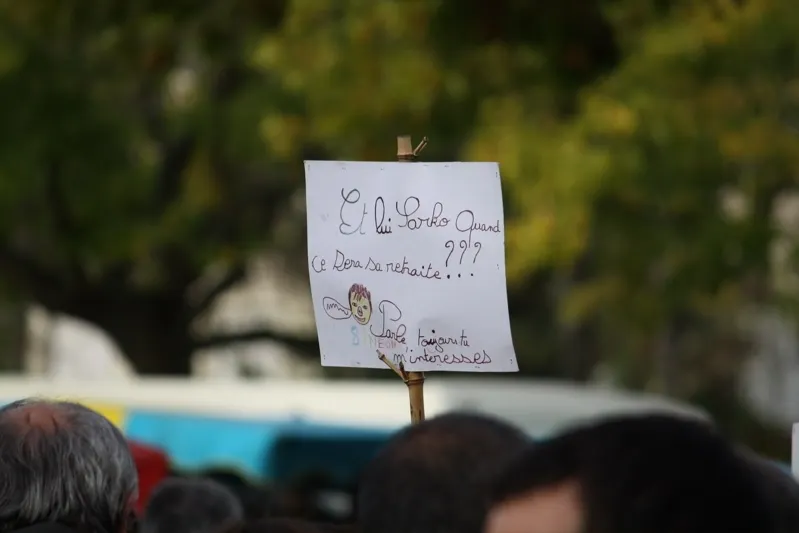 Et lui Sarko Quand
ce sera sa retraite... ???
Parle toujours tu
SIMEON
m'interesses